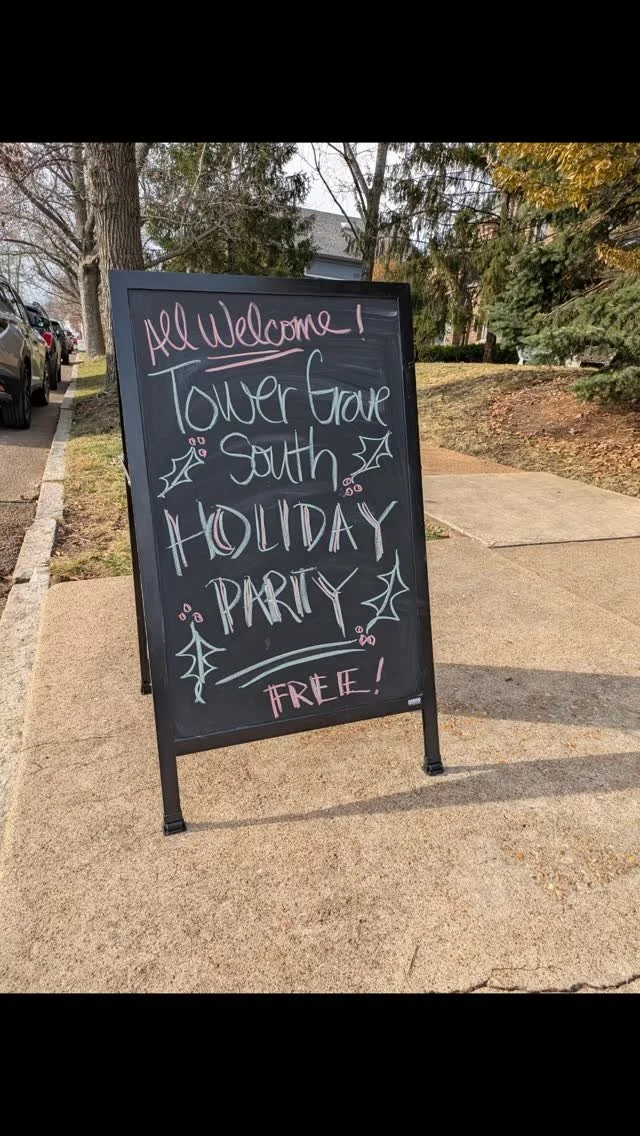 All Welcome!
Tower Grove
South
HOLIDAY
PARTY
FREE!